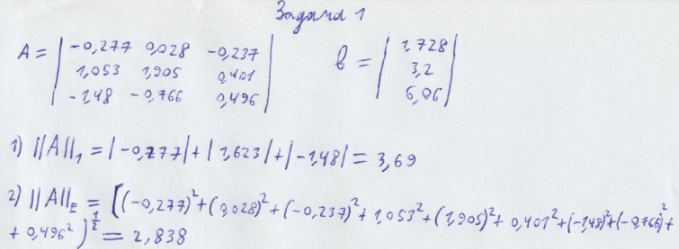 Задача 1
A = | -0,277 0,028 -0,237 |
| 1,053 1,905 0,401 |
| -1,48 -0,766 0,496 |
b = | 1,728 |
| 3,2 |
| 6,06 |
1) ||A||₁ = |-0,277| + |1,623| + |-1,48| = 3,69
2) ||A||_E = [(-0,277)² + (0,028)² + (-0,237)² + 1,053² + (1,905)² + 0,401² + (-1,48)² + (-0,766)² +
+ 0,496²)^½ = 2,838